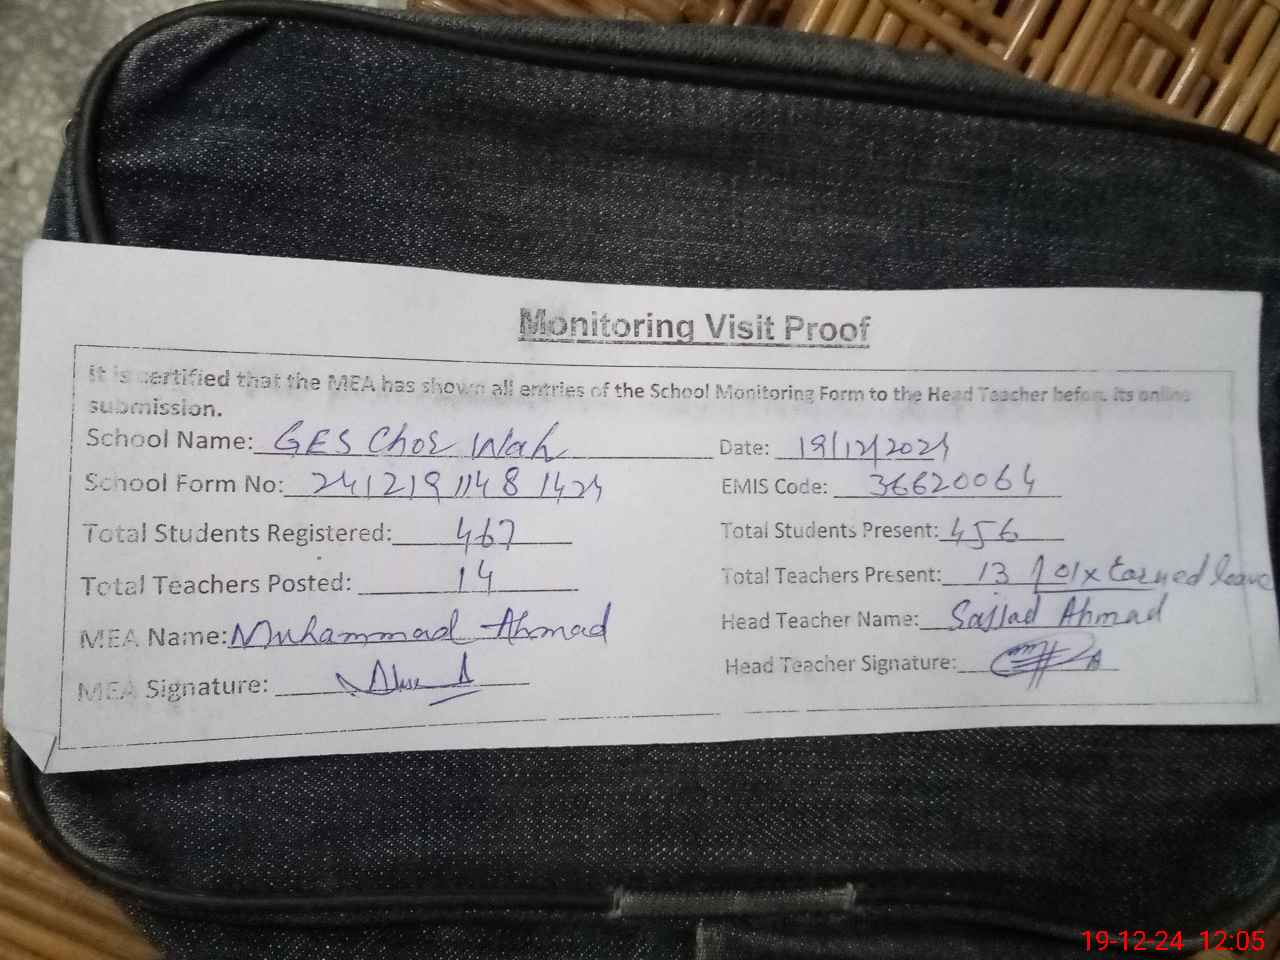 Monitoring Visit Proof
It is certified that the MEA has shown all entries of the School Monitoring Form to the Head Teacher before its online
submission.
School Name: GES Chos Wah
Date: 19/12/2024
School Form No: 24121911481424
EMIS Code: 36620064
Total Students Registered: 467
Total Students Present: 456
Total Teachers Posted: 14
Total Teachers Present: 13 01x Earned leave
MEA Name: Muhammad Ahmad
Head Teacher Name: Sajjad Ahmad
MEA Signature:
Head Teacher Signature:
19-12-24 12:05